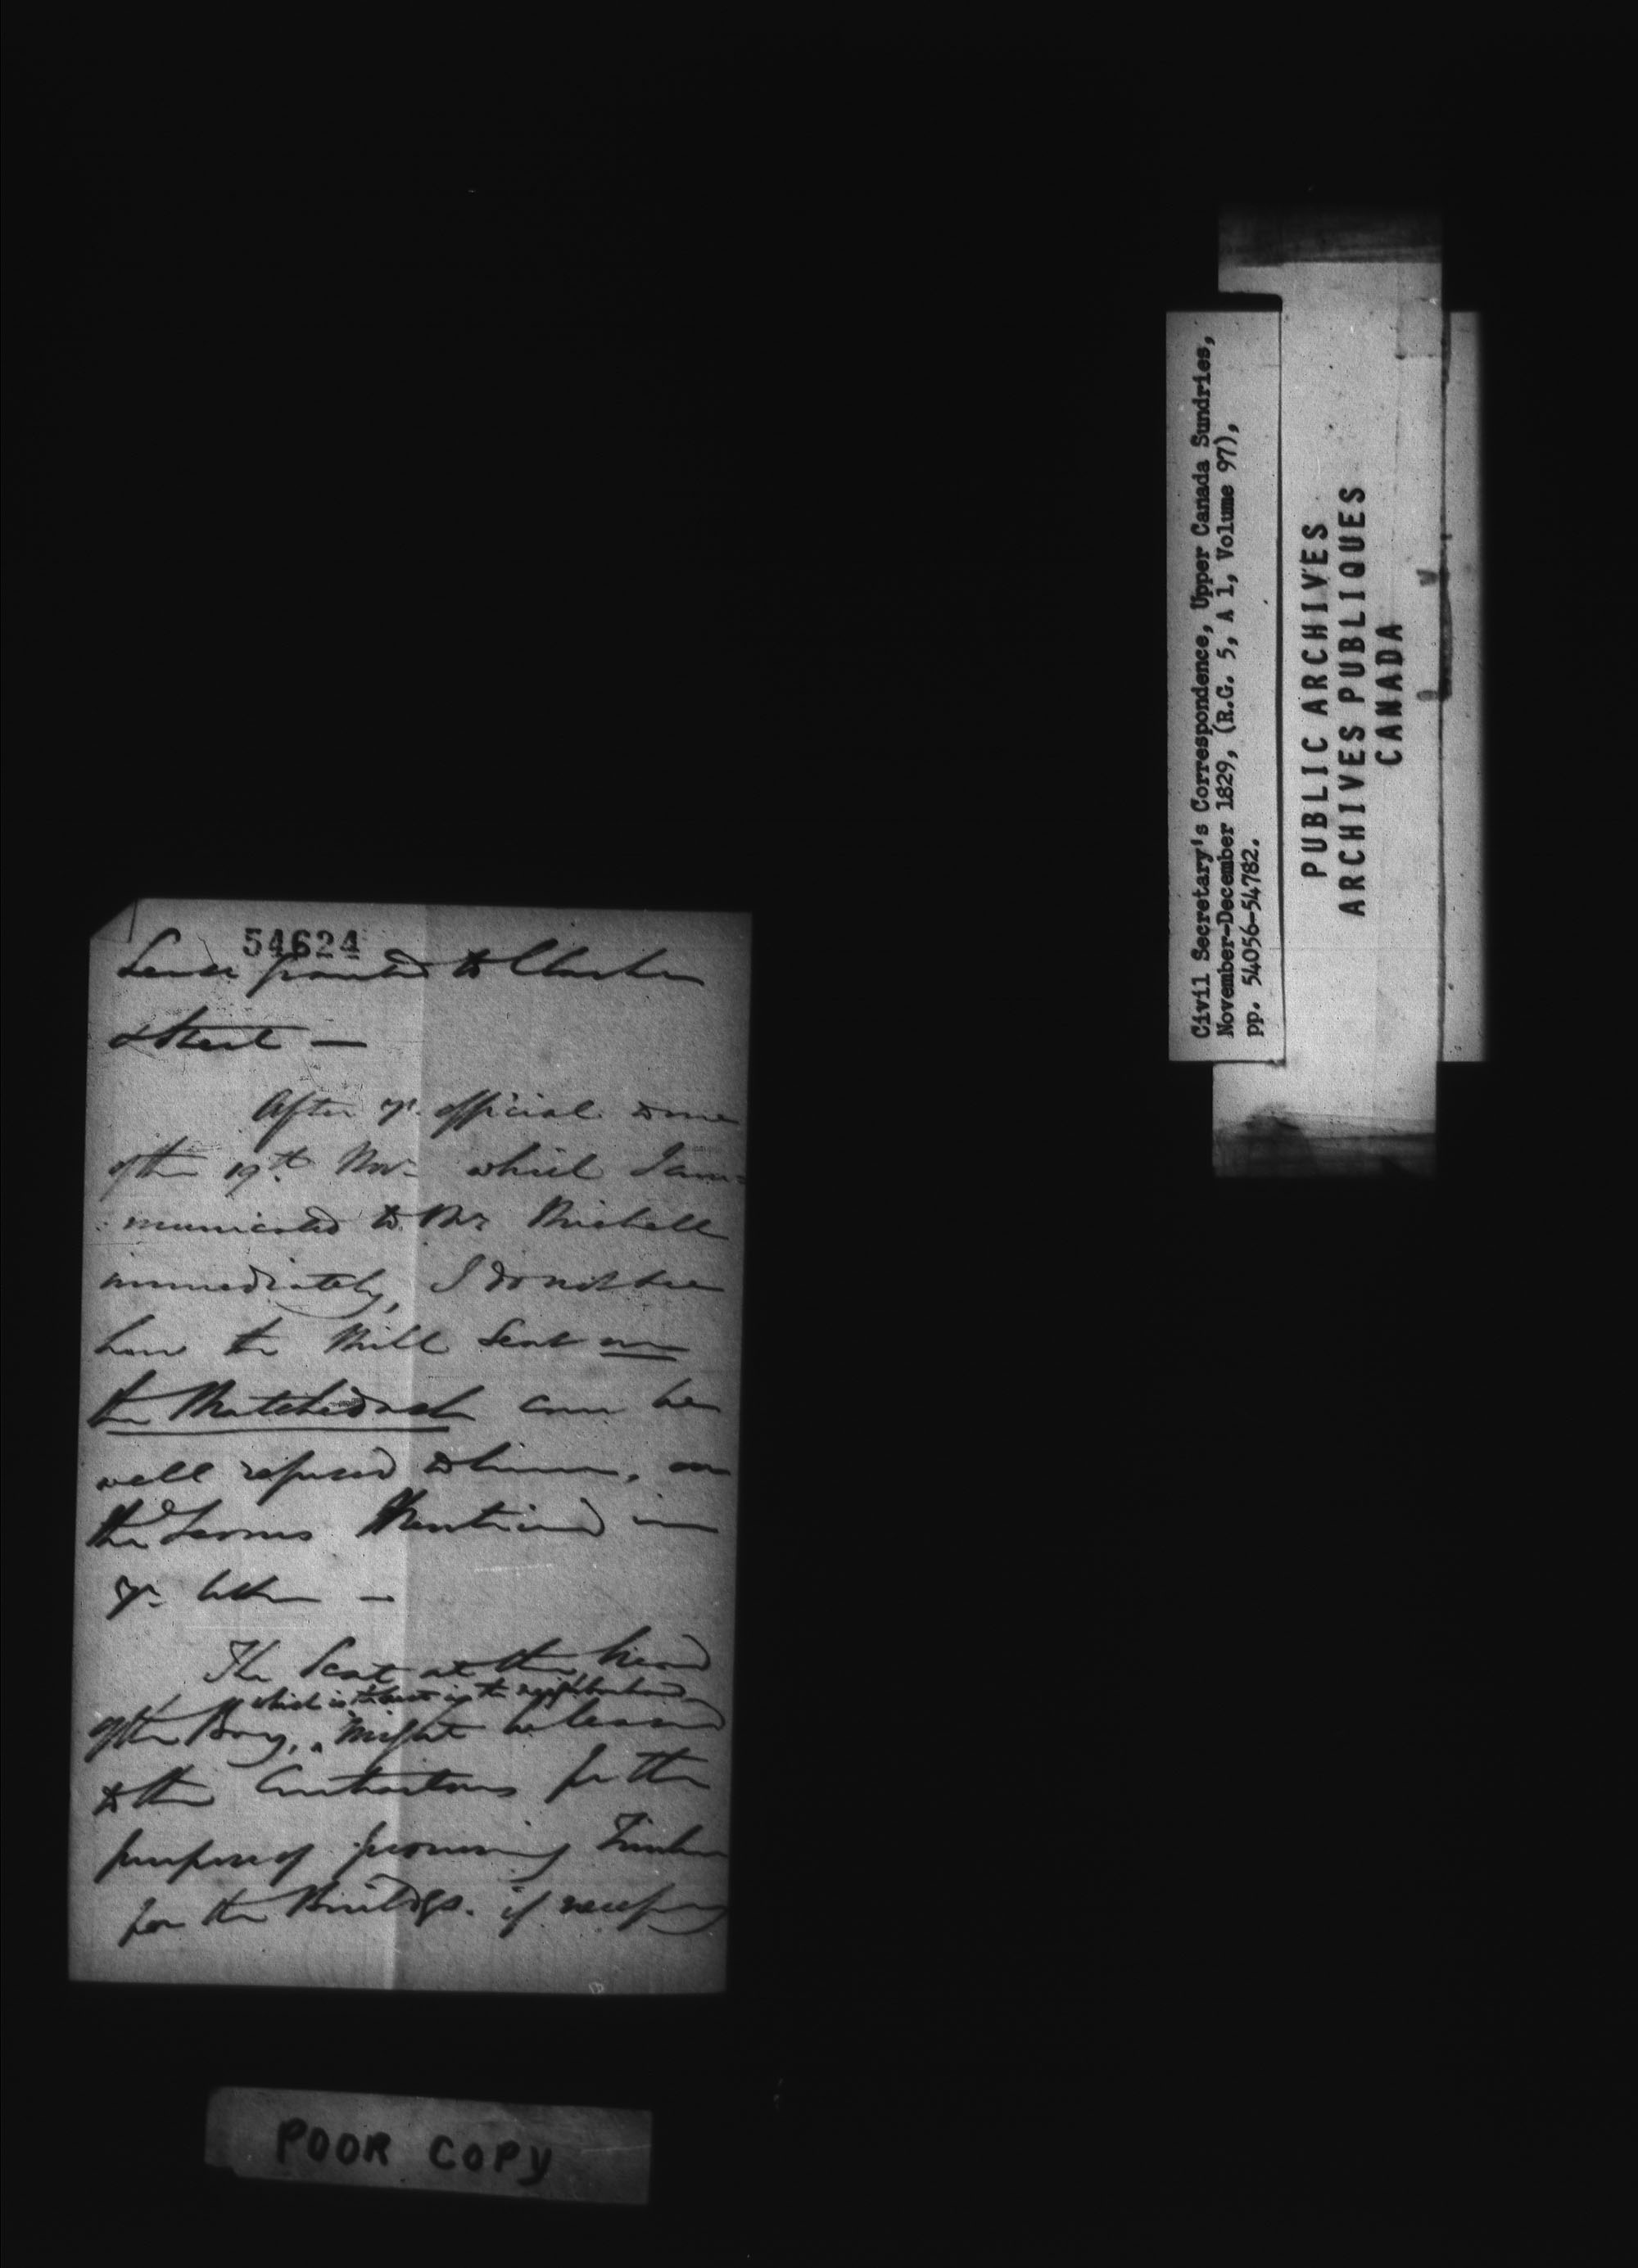 54624
Lease granted to Clarke
& Street —
After yr. official to me
of the 19th Novr which I com-
municated to Mr Mitchell
immediately, I do not see
how the Mill Seat on
the Matchedash can be
well refused to him, on
the terms Mentioned in
yr. letter —
The Seat at the head
which is the best in the neighborhood
of the Bay, ^ might be leased
to the Contractors for the
purpose of procuring Timber
for the Buildgs. if necessary
POOR COPY
Civil Secretary's Correspondence, Upper Canada Sundries,
November-December 1829, (R.G. 5, A 1, Volume 97),
pp. 54056-54782.
PUBLIC ARCHIVES
ARCHIVES PUBLIQUES
CANADA